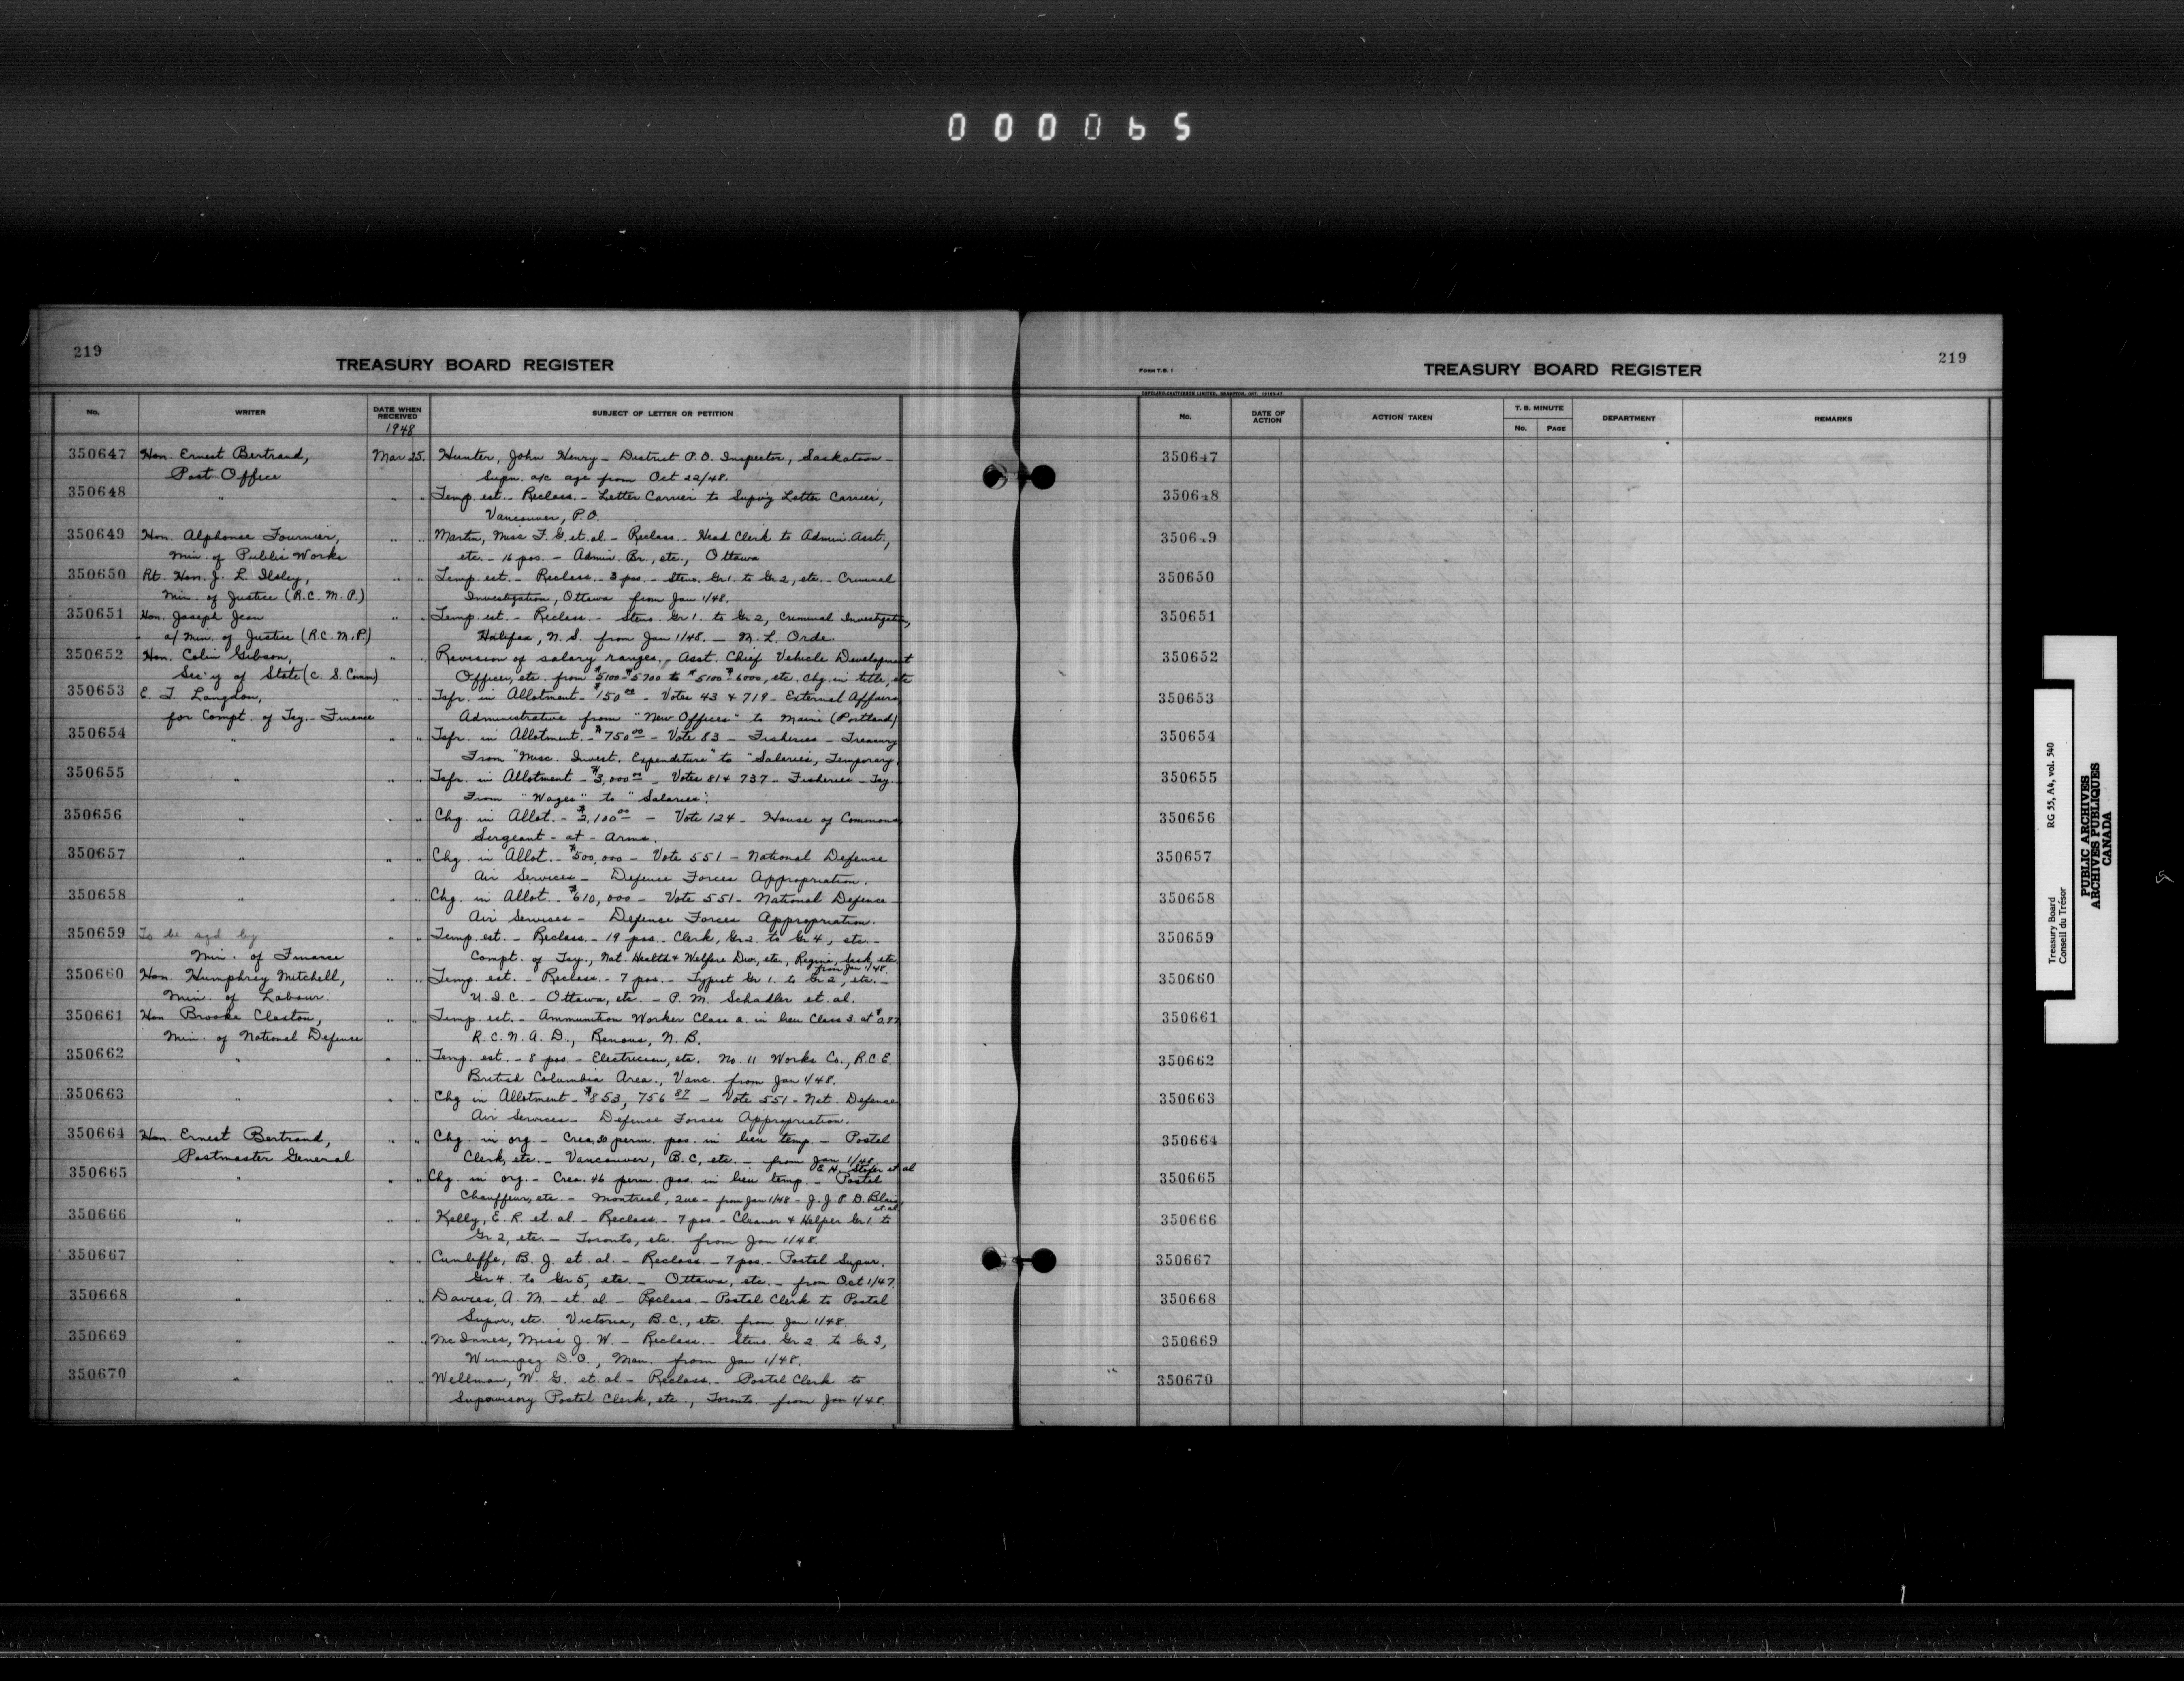 000065
219
TREASURY BOARD REGISTER
No. WRITER DATE WHEN RECEIVED SUBJECT OF LETTER OR PETITION
1948
350647 Hon. Ernest Bertrand, Mar 25. Hunter, John Henry - District P.O. Inspector, Saskatoon -
Post Office Supn. a/c age from Oct 22/48.
350648 " " " Temp. est. - Reclass. - Letter Carrier to Supv'g Letter Carrier,
Vancouver, P.O.
350649 Hon. Alphonse Fournier, " " Martin, Miss F. G. et. al. - Reclass. - Head Clerk to Admin. Asst.,
Min. of Public Works etc. - 16 pos. - Admin. Br., etc., Ottawa
350650 Rt. Hon. J. L. Ilsley, " " Temp. est. - Reclass. - 3 pos. - Steno. Gr 1. to Gr 2, etc. - Criminal
Min. of Justice (R.C.M.P.) Investigation, Ottawa from Jan 1/48.
350651 Hon. Joseph Jean " " Temp. est. - Reclass. - Steno. Gr 1. to Gr 2, Criminal Investigation,
a/ Min. of Justice (R.C.M.P.) Halifax, N.S. from Jan 1/48. - M. L. Orde.
350652 Hon. Colin Gibson, " " Revision of salary ranges. - Asst. Chief Vehicle Development
Sec'y of State (C. S. Comm) Officer, etc. from $5100-$5700 to $5100-$6000, etc. Chg. in title, etc
350653 E. J. Langdon, " " Tsfr. in Allotment - $150.00 - Votes 43 & 719 - External Affairs,
for Compt. of Tsy. - Finance Administrative from "New Offices" to Maine (Portland)
350654 " " " Tsfr. in Allotment. - $750.00 - Vote 83 - Fisheries - Treasury
From "Misc. Invest. Expenditure" to "Salaries, Temporary.
350655 " " " Tsfr. in Allotment - $3,000.00 - Votes 81 & 737 - Fisheries - Tsy.
From "Wages" to "Salaries".
350656 " " Chg. in Allot. - $2,100.00 - Vote 124 - House of Commons
Sergeant - at - Arms.
350657 " " " Chg. in Allot. - $500,000 - Vote 551 - National Defense
Air Services - Defense Forces Appropriation.
350658 " " " Chg. in Allot. - $610,000 - Vote 551 - National Defence -
Air Services - Defense Forces Appropriation.
350659 To be sgd by " " Temp. est. - Reclass. - 19 pos. - Clerk, Gr 2. to Gr 4, etc. -
Min. of Finance Compt. of Tsy., Nat. Health & Welfare Div., etc., Regina, Sask, etc.
from Jan 1/48.
350660 Hon. Humphrey Mitchell, " " Temp. est. - Reclass. - 7 pos. - Typist Gr 1. to Gr 2, etc. -
Min. of Labour. U.I.C. - Ottawa, etc. - P. M. Schadler et. al.
350661 Hon Brooke Claxton, " " Temp. est. - Ammunition Worker Class 2. in lieu Class 3. at $0.87
Min. of National Defense R.C.N.A.D., Renous, N.B.
350662 " " " Temp. est. - 8 pos. - Electrician, etc. No. 11 Works Co., R.C.E.
British Columbia Area., Vanc. from Jan 1/48.
350663 " " " Chg in Allotment - $853,756.87 - Vote 551 - Nat. Defense
Air Services - Defense Forces Appropriation.
350664 Hon. Ernest Bertrand, " " Chg. in org. - Crea. 20 perm. pos. in lieu temp. - Postal
Postmaster General Clerk, etc. - Vancouver, B.C, etc. - from Jan 1/48
et al
350665 " " " Chg. in org. - Crea. 46 perm. pos. in lieu temp. - Postal
Chauffeur, etc. - Montreal, Que - from Jan 1/48 - J. J. P. D. Blais,
et al
350666 " " " Kelly, E. R. et. al. - Reclass. - 7 pos. - Cleaner & Helper Gr 1. to
Gr 2, etc. - Toronto, etc. from Jan 1/48.
350667 " " " Cunliffe, B. J. et. al. - Reclass. - 7 pos. - Postal Supvr.
Gr 4. to Gr 5, etc. - Ottawa, etc. - from Oct 1/47.
350668 " " " Davies, A. M. - et. al. - Reclass. - Postal Clerk to Postal
Supvr, etc. Victoria, B.C., etc. from Jan 1/48.
350669 " " " McInnes, Miss J. W. - Reclass. - Steno. Gr 2. to Gr 3,
Winnipeg D.O., Man. from Jan 1/48.
350670 " " " Wellman, W. G. et. al - Reclass. - Postal Clerk to
Supervisory Postal Clerk, etc., Toronto. from Jan 1/48.
FORM T.B. 1
TREASURY BOARD REGISTER
219
No. DATE OF ACTION ACTION TAKEN T. B. MINUTE No. PAGE DEPARTMENT REMARKS
350647
350648
350649
350650
350651
350652
350653
350654
350655
350656
350657
350658
350659
350660
350661
350662
350663
350664
350665
350666
350667
350668
350669
350670
Treasury Board RG 55, A4, vol. 540
Conseil du Trésor
PUBLIC ARCHIVES
ARCHIVES PUBLIQUES
CANADA